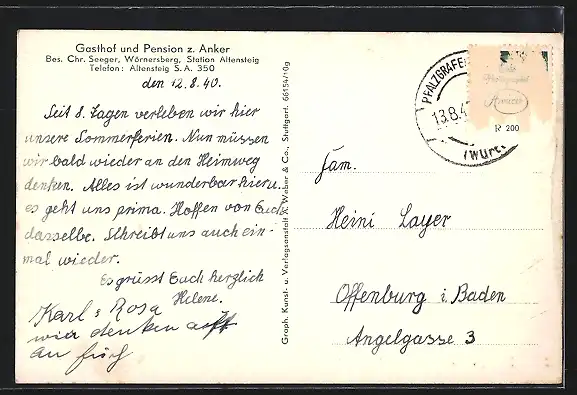 Gasthof und Pension z. Anker
Bes. Chr. Seeger, Wörnersberg, Station Altensteig
Telefon: Altensteig S.A. 350
den 12.8.40.
Seit 8. Tagen verleben wir hier
unsere Sommerferien. Nun müssen
wir bald wieder an den Heimweg
denken. Alles ist wunderbar hier u.
es geht uns prima. Hoffen von Euch
dasselbe. Schreibt uns auch ein-
mal wieder.
Es grüsst Euch herzlich
Helene.
Karl & Rosa
wir denken oft
an Euch
Graph. Kunst- u. Verlagsanstalt K. Weber & Co., Stuttgart. 66154/10g
PFALZGRAFEN
13.8.4
(WÜRTT
R 200
Fam.
Heini Layer
Offenburg i. Baden
Angelgasse 3